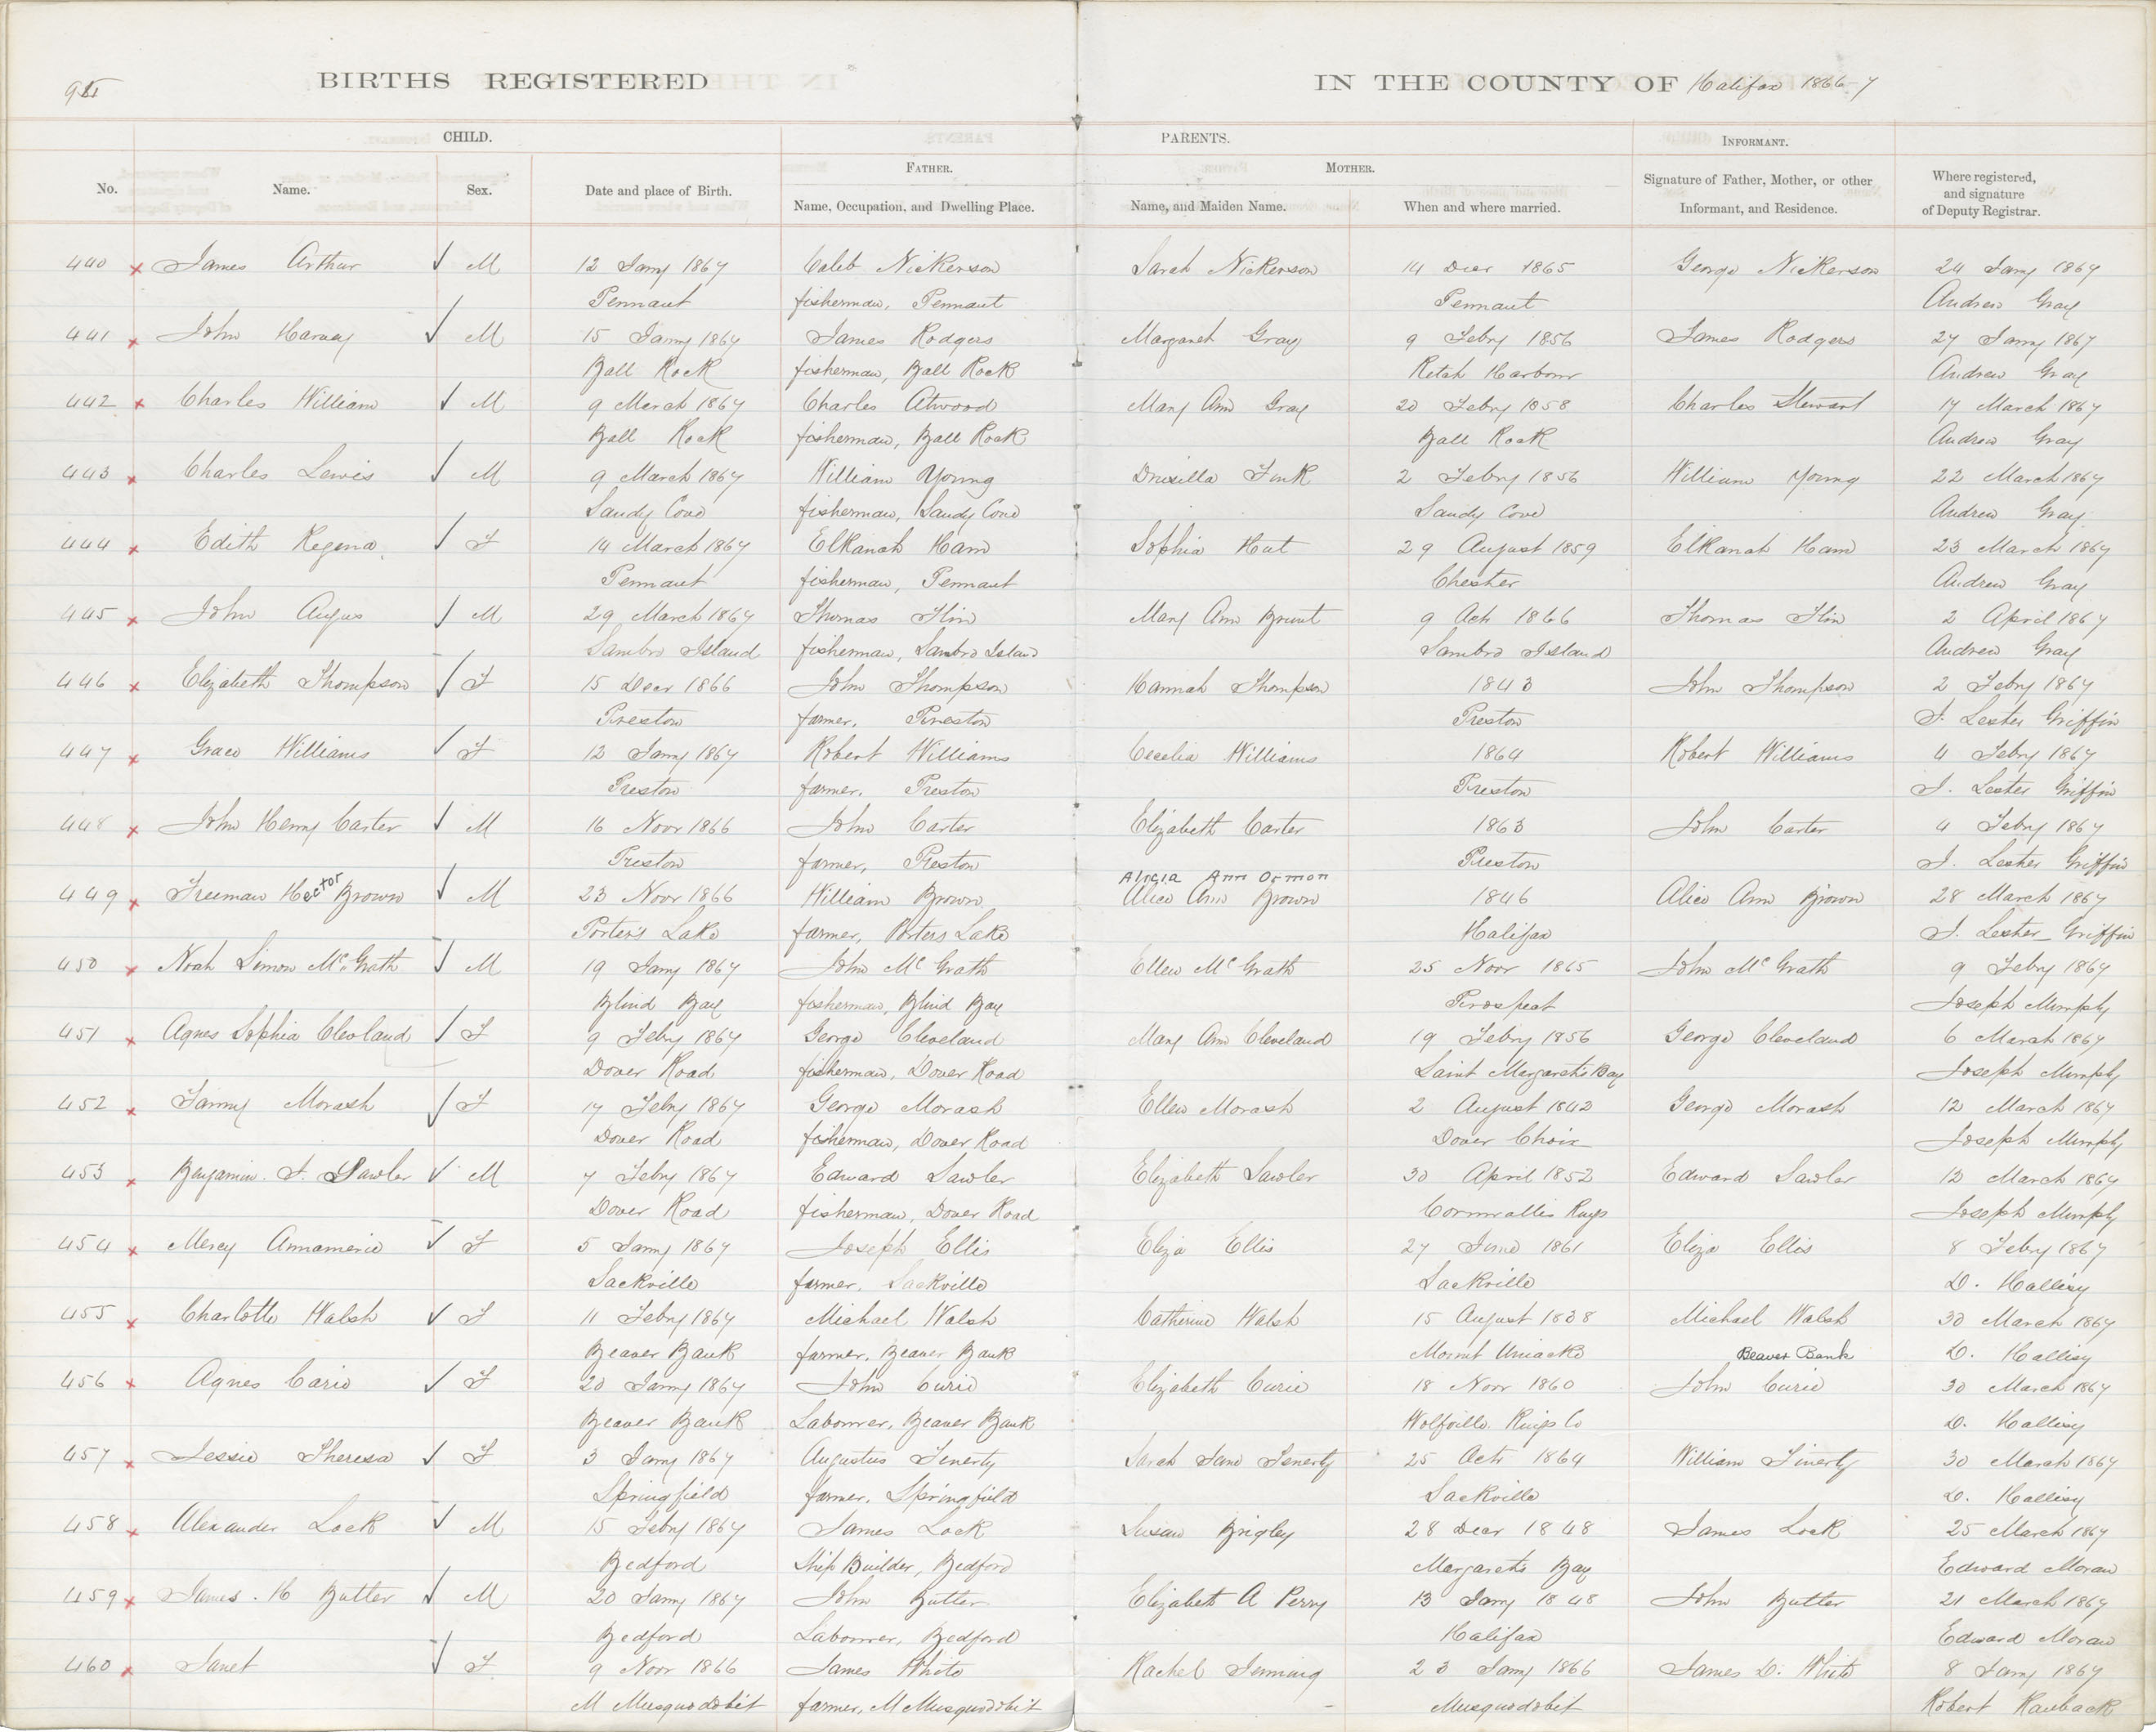 BIRTHS REGISTERED IN THE COUNTY OF Halifax 1866-7
CHILD. PARENTS. INFORMANT.
FATHER. MOTHER.
No. Name. Sex. Date and place of Birth. Name, Occupation, and Dwelling Place. Name, and Maiden Name. When and where married. Signature of Father, Mother, or other Informant, and Residence. Where registered, and signature of Deputy Registrar.
440 x James Arthur ✓ M 12 Jany 1867 Caleb Nickerson Sarah Nickerson 14 Decr 1865 George Nickerson 24 Jany 1867
Pennant fisherman, Pennant Pennant Andrew Gray
441 x John Harvey ✓ M 15 Jany 1867 James Rodgers Margaret Gray 9 Feby 1856 James Rodgers 27 Jany 1867
Ball Rock fisherman, Ball Rock Ketch Harbour Andrew Gray
442 x Charles William ✓ M 9 March 1867 Charles Atwood Mary Ann Gray 20 Feby 1858 Charles Stewart 17 March 1867
Ball Rock fisherman, Ball Rock Ball Rock Andrew Gray
443 x Charles Lewis ✓ M 9 March 1867 William Young Drusilla Fink 2 Feby 1856 William Young 22 March 1867
Sandy Cove fisherman, Sandy Cove Sandy Cove Andrew Gray
444 x Edith Regena ✓ F 14 March 1867 Elkanah Ham Sophia Hut 29 August 1859 Elkanah Ham 23 March 1867
Pennant fisherman, Pennant Chester Andrew Gray
445 x John Angus ✓ M 29 March 1867 Thomas Flin Mary Ann Brunt 9 Octr 1866 Thomas Flin 2 April 1867
Sambro Island fisherman, Sambro Island Sambro Island Andrew Gray
446 x Elizabeth Thompson ✓ F 15 Decr 1866 John Thompson Hannah Thompson 1843 John Thompson 2 Feby 1867
Preston farmer, Preston Preston J. Lester Griffin
447 x Grace Williams ✓ F 12 Jany 1867 Robert Williams Cecelia Williams 1864 Robert Williams 4 Feby 1867
Preston farmer, Preston Preston J. Lester Griffin
448 x John Henry Carter ✓ M 16 Novr 1866 John Carter Elizabeth Carter 1863 John Carter 4 Feby 1867
Preston farmer, Preston Preston J. Lester Griffin
Alicia Ann Ormon
449 x Freeman Hector Brown ✓ M 23 Novr 1866 William Brown Alice Ann Brown 1846 Alice Ann Brown 28 March 1867
Porter's Lake farmer, Porters Lake Halifax J. Lester Griffin
450 x Noah Simon McGrath ✓ M 19 Jany 1867 John McGrath Ellen McGrath 25 Novr 1865 John McGrath 9 Feby 1867
Blind Bay fisherman, Blind Bay Prospect Joseph Murphy
451 x Agnes Sophia Cleveland ✓ F 9 Feby 1867 George Cleveland Mary Ann Cleveland 19 Feby 1856 George Cleveland 6 March 1867
Dover Road fisherman, Dover Road Saint Margarets Bay Joseph Murphy
452 x Fanny Morash ✓ F 17 Feby 1867 George Morash Ellen Morash 2 August 1842 George Morash 12 March 1867
Dover Road fisherman, Dover Road Dover Joseph Murphy
453 x Benjamin. F. Sawler ✓ M 7 Feby 1867 Edward Sawler Elizabeth Sawler 30 April 1852 Edward Sawler 12 March 1867
Dover Road fisherman, Dover Road Cornwallis Kings Joseph Murphy
454 x Mercy Annameric ✓ F 5 Jany 1867 Joseph Ellis Eliza Ellis 27 June 1861 Eliza Ellis 8 Feby 1867
Sackville farmer, Sackville Sackville D. Hallisy
455 x Charlotte Walsh ✓ F 11 Feby 1867 Michael Walsh Catherine Walsh 15 August 1838 Michael Walsh 30 March 1867
Beaver Bank farmer, Beaver Bank Mount Uniacke Beaver Bank D. Hallisy
456 x Agnes Carie ✓ F 20 Jany 1867 John Curie Elizabeth Curie 18 Novr 1860 John Curie 30 March 1867
Beaver Bank Labourer, Beaver Bank Wolfville. Kings Co D. Hallisy
457 x Jessie Theresa ✓ F 3 Jany 1867 Augustus Fenerty Sarah Jane Fenerty 25 Octr 1864 William Finerty 30 March 1867
Springfield farmer, Springfield Sackville D. Hallisy
458 x Alexander Lock ✓ M 15 Feby 1867 James Lock Susan Brigley 28 Decr 1848 James Lock 25 March 1867
Bedford Ship Builder, Bedford Margarets Bay Edward Moran
459 x James. H Butler ✓ M 20 Jany 1867 John Butler Elizabeth A Perry 13 Jany 1848 John Butler 21 March 1867
Bedford Labourer, Bedford Halifax Edward Moran
460 x Janet ✓ F 9 Novr 1866 James White Rachel Jenning 23 Jany 1866 James D. White 8 Jany 1867
M Musquodobit farmer, M Musquodobit Musquodobet Robert Kaulback